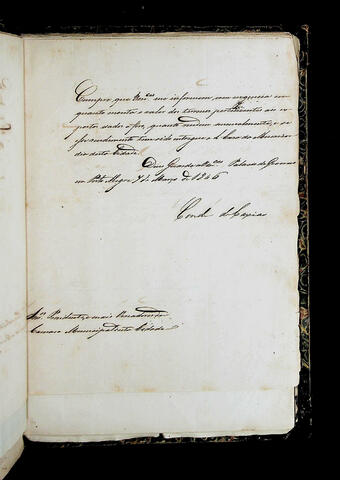 Cumpre que V.ces me informem, com urgencia em
quanto monta o valor dos terrenos pertencentes ao
dados á foro, quanto rendem annualmente, e se
esse rendimento tem sido entregue á Caza da Mizericor
dia desta Cidade.
Deos Guarde a V.ces Palacio do Governo
em Porto Alegre de Março de 1846
Conde de Caxias
Snr.es Presidente, e mais Vereadores da
Camara Municipal desta Cidade